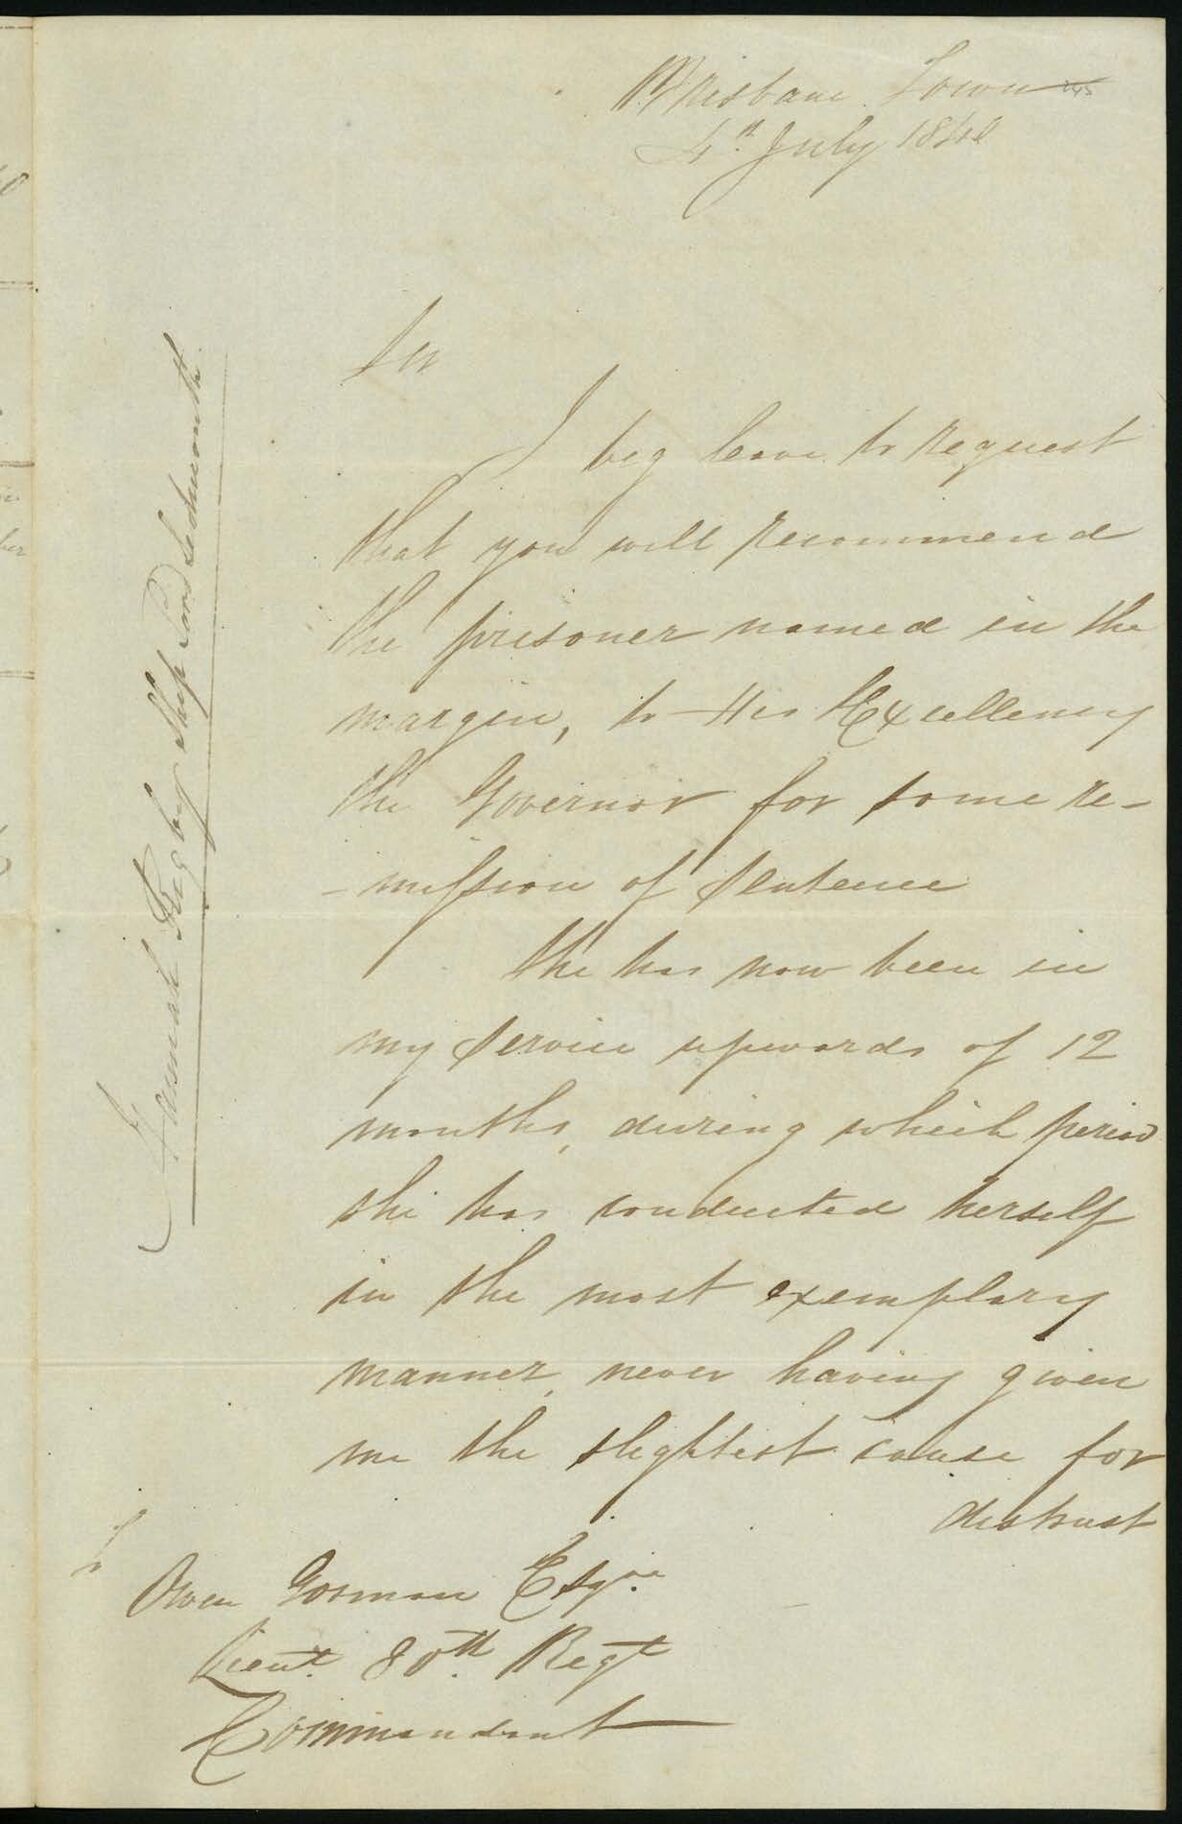 Brisbane Town
4th July 1840
Sir
I beg leave to request
that you will recommend
the prisoner named in the
margin, to His Excellency
the Governor for some re-
-mission of sentence
She has now been in
my service upwards of 12
months, during which period
she has conducted herself
in the most exemplary
manner, never having given
me the slightest cause for
distrust
To
Owen Gorman Esqre.
Lieut. 80th. Regt
Commandant
Hannah Rigby Ship Lord Sidmouth.